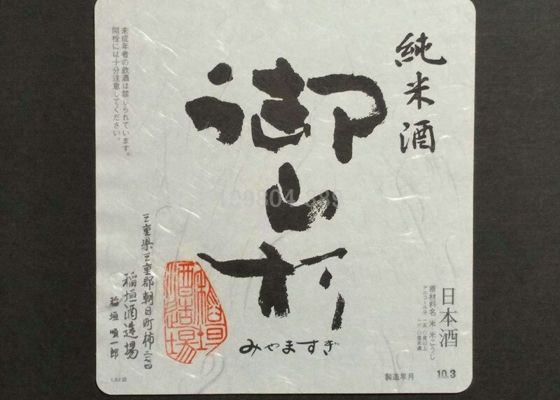 純米酒
御山杉
みやますぎ
日本酒
原材料名 米 米こうじ
製造年月
10.3
未成年者の飲酒は禁じられています。
開栓には十分注意してください。
三重県三重郡朝日町柿
稲垣酒造場
稲垣
稲垣
酒造場